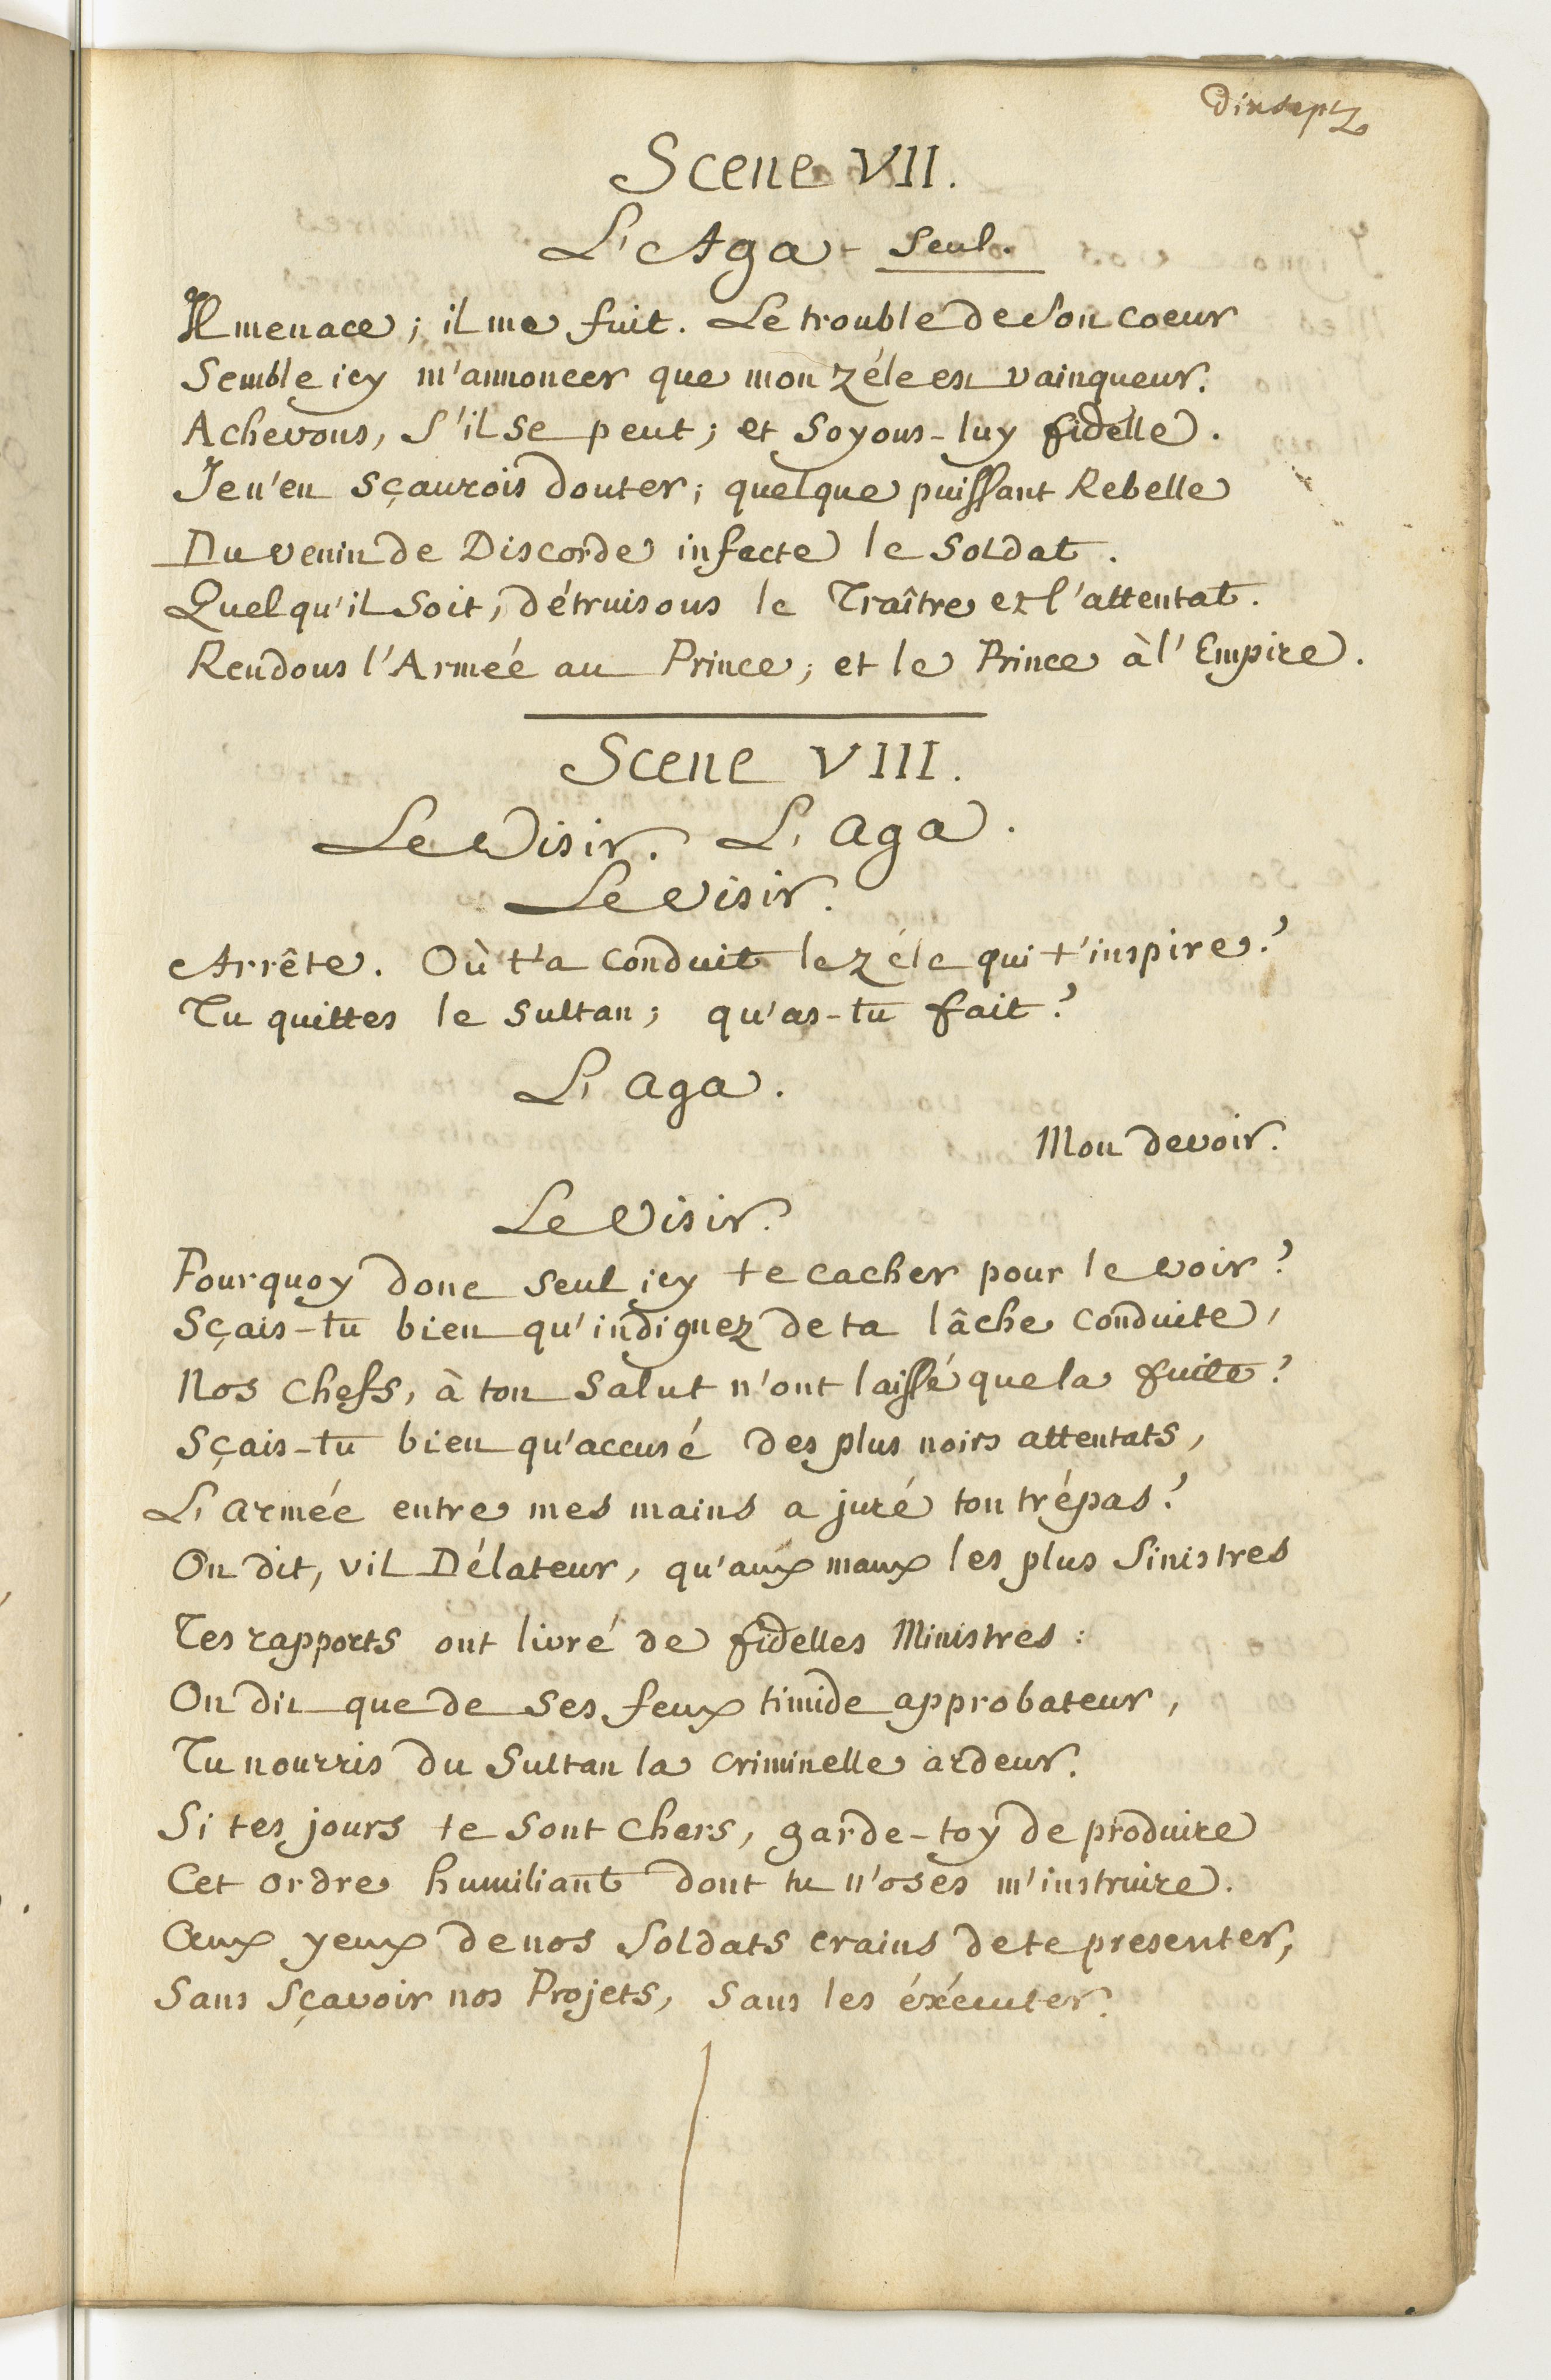 dixsept
Scene VII.
L'Aga seul.
Il menace; il me fuit. Le trouble de son coeur
Semble icy m'annoncer que mon zéle est vainqueur.
Achevons, s'il se peut; et soyons-luy fidelle.
Je n'en sçaurois douter; quelque puissant Rebelle
Du venin de Discorde infecte le Soldat.
Quel qu'il soit, détruisons le Traître et l'attentat.
Rendons l'Armeé au Prince, et le Prince à l'Empire.
Scene VIII.
Le Visir. L'Aga.
Le Visir.
Arrête. Où t'a conduit le zéle qui t'inspire?
Tu quittes le Sultan; qu'as-tu fait?
L'Aga.
Mon devoir.
Le Visir.
Pourquoy donc seul icy te cacher pour le voir?
Sçais-tu bien qu'indignez de ta lâche conduite,
Nos chefs, à ton salut n'ont laissé que la fuite?
Sçais-tu bien qu'accusé des plus noirs attentats,
L'armée entre mes mains a juré ton trépas?
On dit, vil Délateur, qu'aux maux les plus sinistres
Tes rapports ont livré de fidelles Ministres:
On dit que de ses feux timide approbateur,
Tu nourris du Sultan la criminelle ardeur.
Si tes jours te sont chers, garde-toy de produire
Cet ordre humiliant dont tu n'oses m'instruire.
Aux yeux de nos Soldats crains de te presenter,
Sans sçavoir nos Projets, sans les éxécuter.